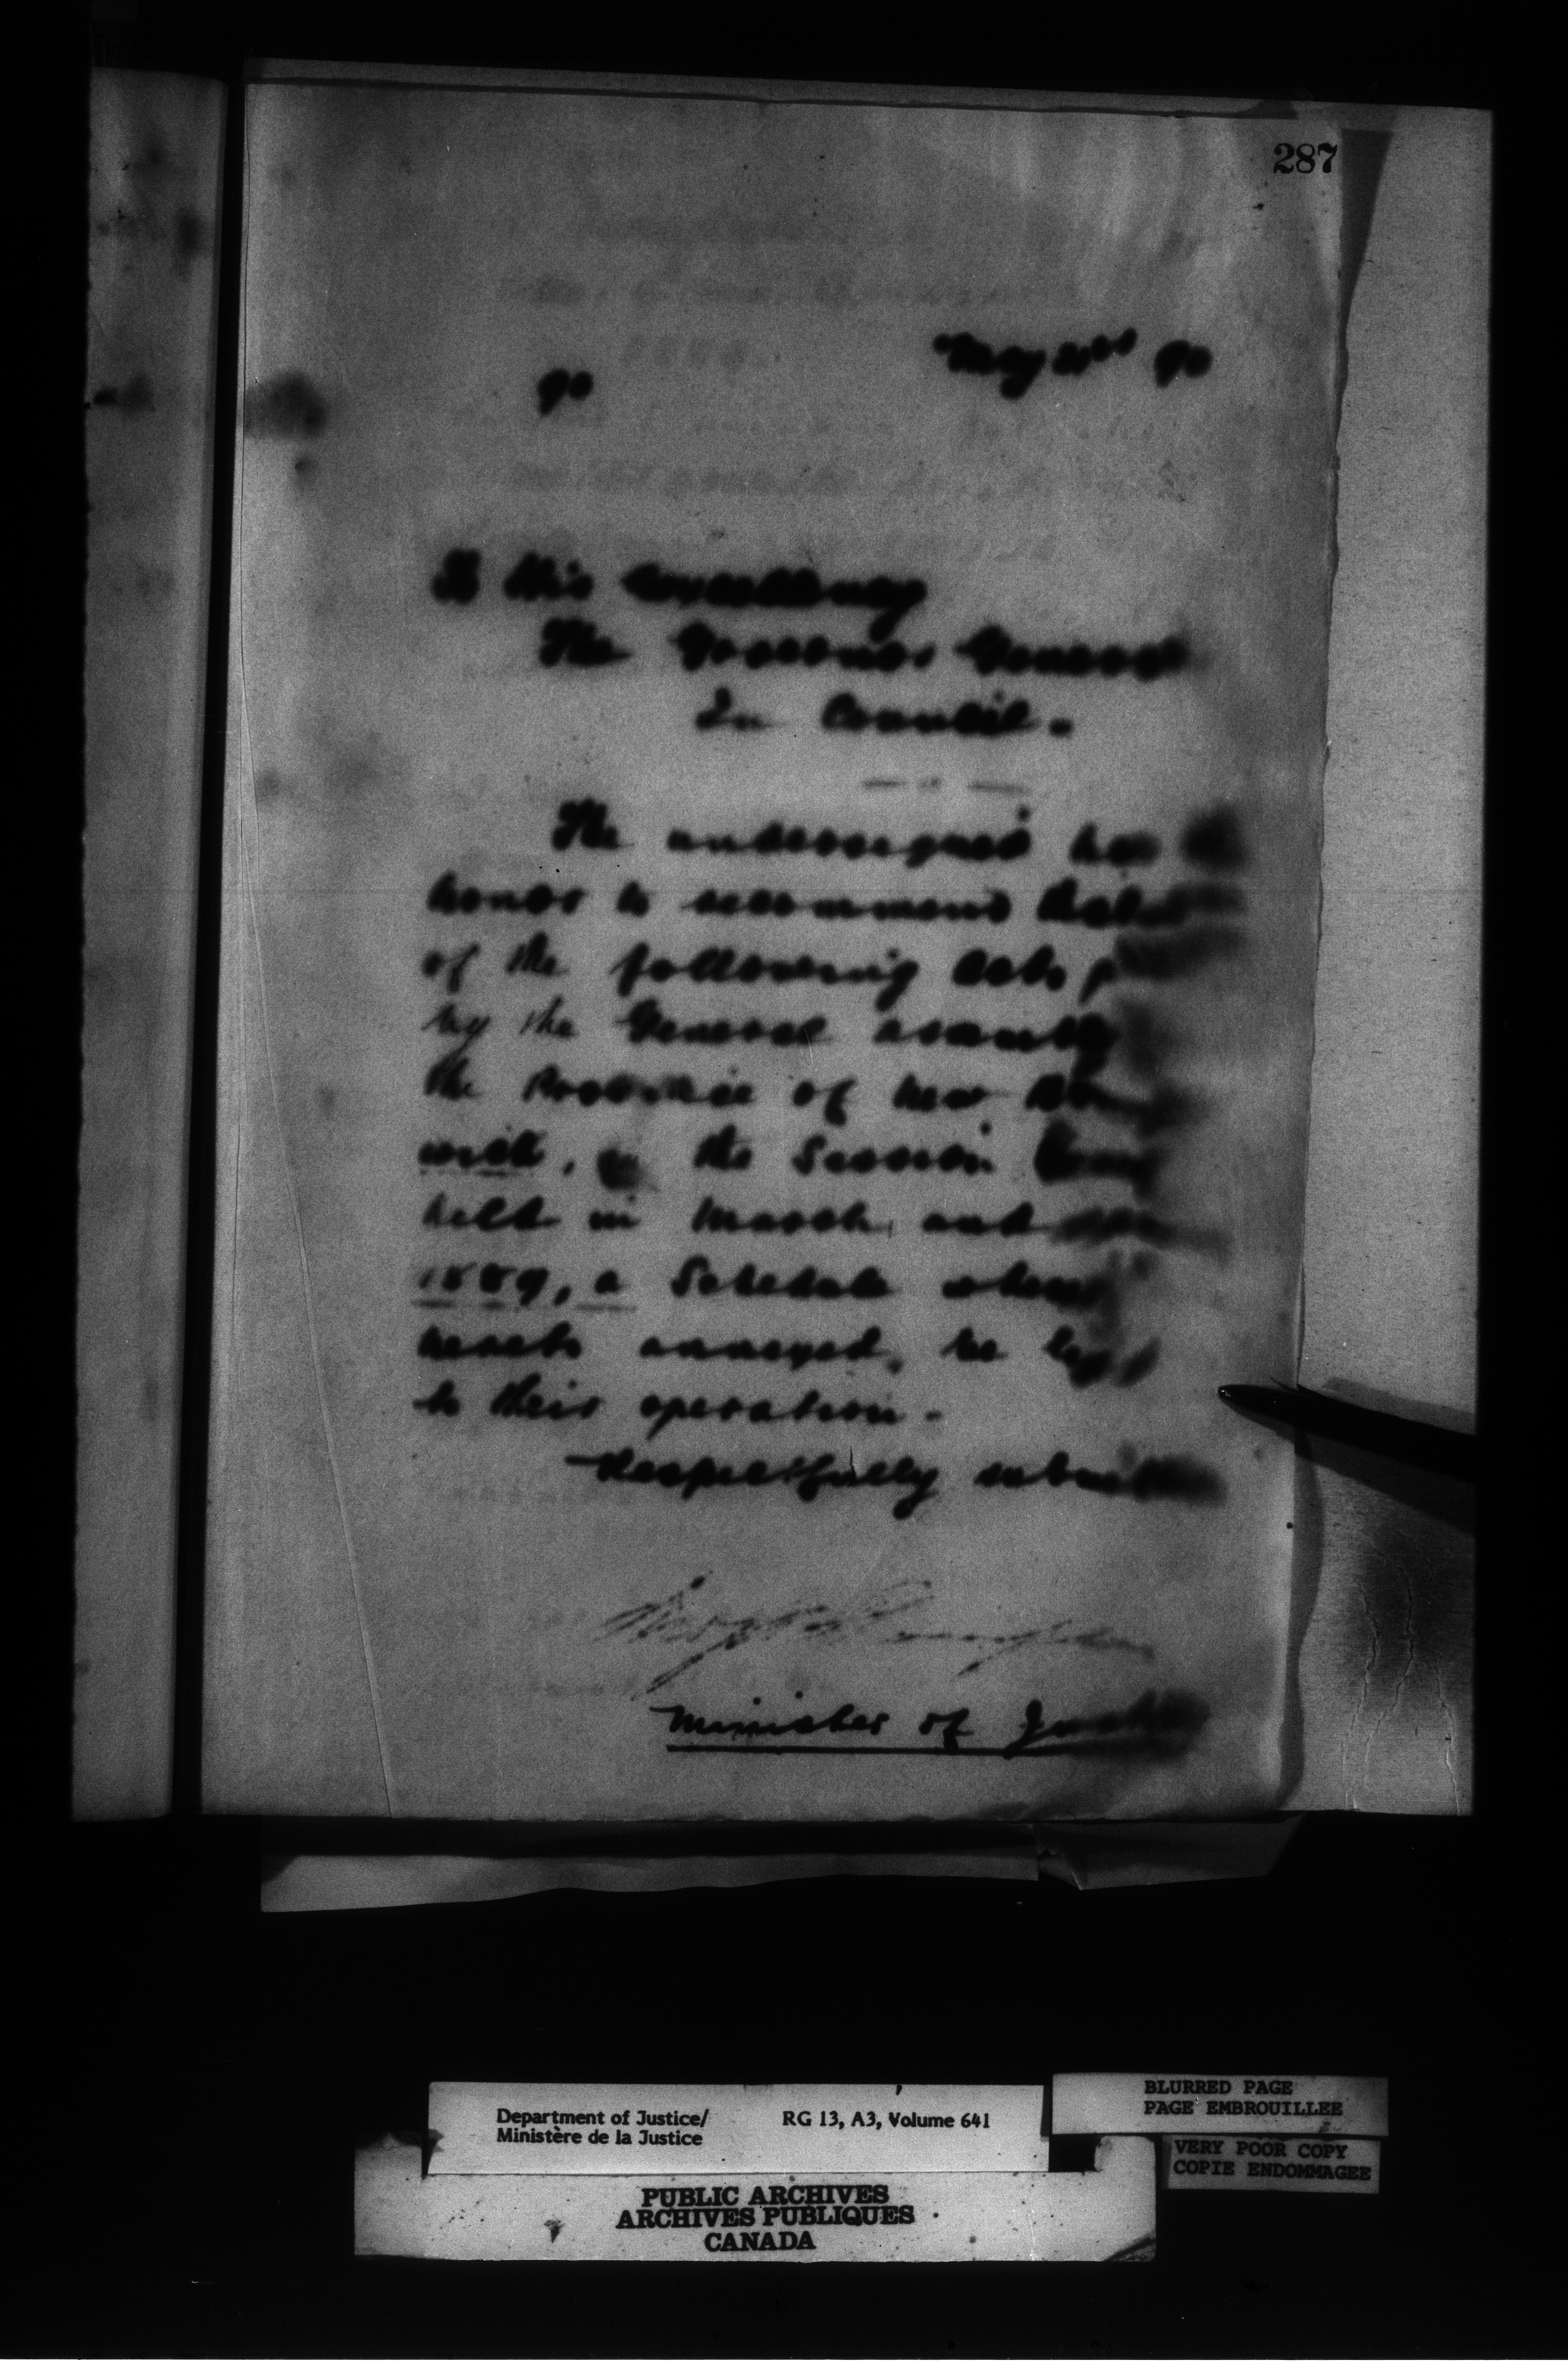 287
May 90
90
To His Excellency
The Governor General
In Council.
The undersigned has
honor to recommend that
of the following Acts
by the General Assembly
the Province of New
wick, the Session
held in March, and
1889, a Schedule
hereto annexed, be
to their operation.
Respectfully
Minister of Justice
Department of Justice/ RG 13, A3, Volume 641
Ministère de la Justice
BLURRED PAGE
PAGE EMBROUILLEE
VERY POOR COPY
COPIE ENDOMMAGEE
PUBLIC ARCHIVES
ARCHIVES PUBLIQUES
CANADA